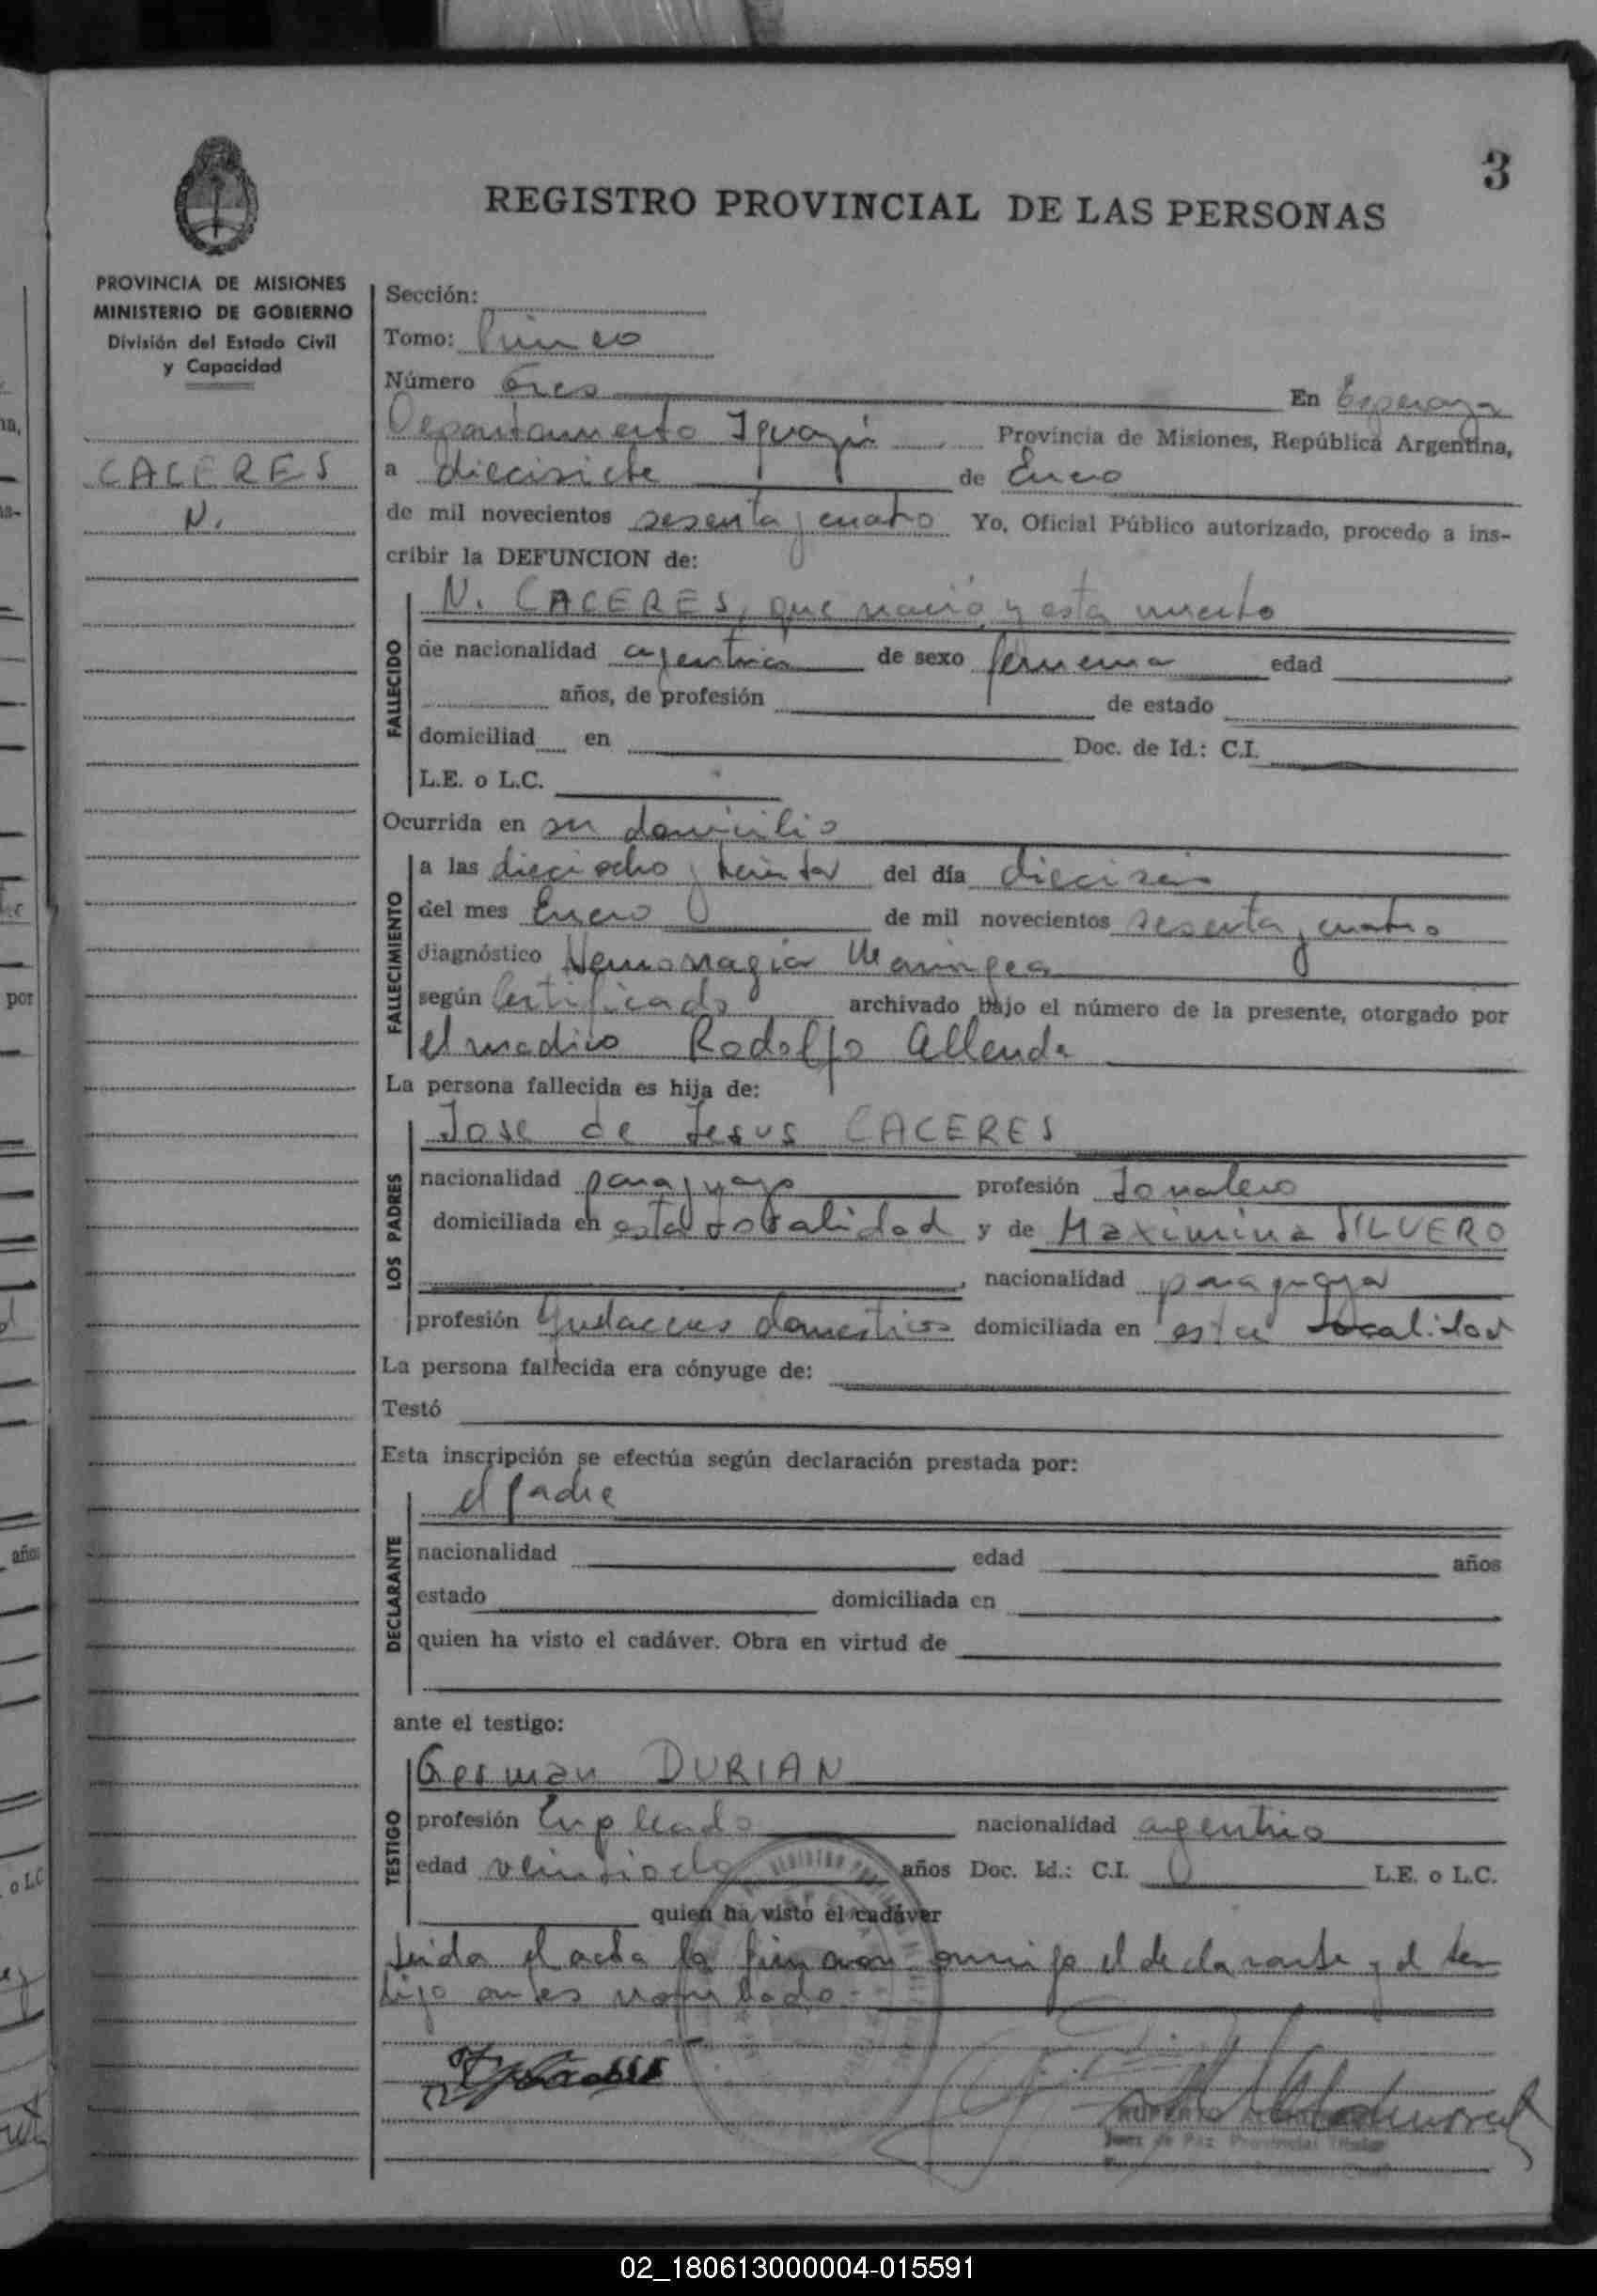 3
REGISTRO PROVINCIAL DE LAS PERSONAS
PROVINCIA DE MISIONES
MINISTERIO DE GOBIERNO
División del Estado Civil
y Capacidad
CACERES
N.
Sección:
Tomo: Primero
Número tres En Esperanza
Departamento Iguazú Provincia de Misiones, República Argentina,
a diecisiete de Enero
de mil novecientos sesenta y cuatro Yo, Oficial Público autorizado, procedo a ins-
cribir la DEFUNCION de:
FALLECIDO
N. CACERES, que nació y esta muerto
de nacionalidad argentina de sexo femenina edad
años, de profesión de estado
domiciliad en Doc. de Id.: C.I.
L.E. o L.C.
Ocurrida en su domicilio
FALLECIMIENTO
a las dieciocho y treinta del día dieciseis
del mes Enero de mil novecientos sesenta y cuatro
diagnóstico Hemorragia Meningea
según Certificado archivado bajo el número de la presente, otorgado por
el medico Rodolfo Allende
La persona fallecida es hija de:
LOS PADRES
Jose de Jesus CACERES
nacionalidad paraguayo profesión Jornalero
domiciliada en esta localidad y de Maximina SILVERO
, nacionalidad paraguaya
profesión Quehaceres domesticos domiciliada en esta localidad
La persona fallecida era cónyuge de:
Testó
Esta inscripción se efectúa según declaración prestada por:
DECLARANTE
el padre
nacionalidad edad años
estado domiciliada en
quien ha visto el cadáver. Obra en virtud de
ante el testigo:
TESTIGO
German DURIAN
profesión Empleado nacionalidad argentino
edad años Doc. Id.: C.I. L.E. o L.C.
quien ha visto el cadáver
Leida el acta la firmaron conmigo el declarante y el tes
tigo antes nombrado.-
Juez de Paz Provincial Titular
por
años
o LC
02_180613000004-015591